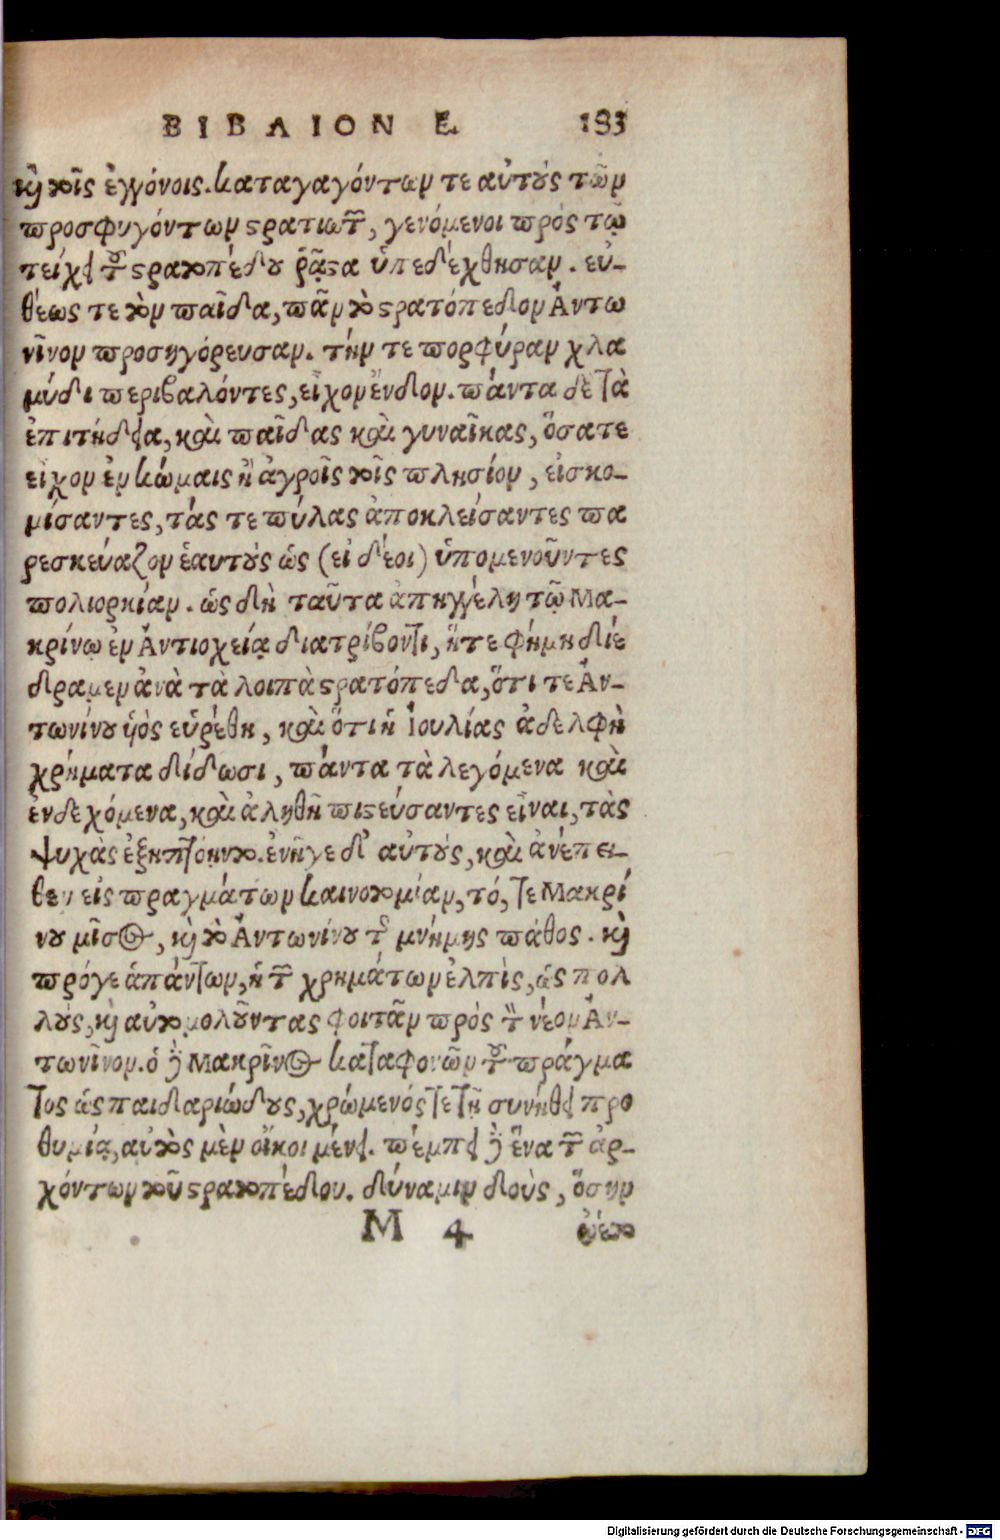 ΒΙΒΛΙΟΝ Ε. 183
καὶ τοῖς ἐγγόνοις. καταγαγόντων τε αὐτοὺς τῶν
προσφυγόντων στρατιωτῶν, γενόμενοι πρὸς τῷ
τείχει τοῦ στρατοπέδου ῥᾷστα ὑπεδέχθησαν. εὐ-
θέως τε τὸν παῖδα, πᾶν τὸ στρατόπεδον Ἀντω
νῖνον προσηγόρευσαν. τήν τε πορφύραν χλα
μύδι περιβαλόντες, εἶχον ἔνδον. πάντα δὲ τὰ
ἐπιτήδεια, καὶ παῖδας καὶ γυναῖκας, ὅσα τε
εἶχον ἐν κώμαις ἢ ἀγροῖς τοῖς πλησίον, εἰσκο-
μίσαντες, τάς τε πύλας ἀποκλείσαντες πα
ρεσκεύαζον ἑαυτοὺς ὡς (εἰ δέοι) ὑπομενοῦντες
πολιορκίαν. ὡς δὴ ταῦτα ἀπηγγέλη τῷ Μα-
κρίνῳ ἐν Ἀντιοχείᾳ διατρίβοντι, ἥ τε φήμη διέ
δραμεν ἀνὰ τὰ λοιπὰ στρατόπεδα, ὅτι τε Ἀν-
τωνίνου υἱὸς εὑρέθη, καὶ ὅτι ἡ Ἰουλίας ἀδελφὴ
χρήματα δίδωσι, πάντα τὰ λεγόμενα καὶ
ἐνδεχόμενα, καὶ ἀληθῆ πιστεύσαντες εἶναι, τὰς
ψυχὰς ἐξηπτόηντο. ἐνῆγε δ' αὐτοὺς, καὶ ἀνέπει-
θεν εἰς πραγμάτων καινοτομίαν, τό, τε Μακρί
νου μῖσος, καὶ τὸ Ἀντωνίνου τῆς μνήμης πάθος. καὶ
πρό γε ἁπάντων, ἡ τῶν χρημάτων ἐλπὶς, ὡς πολ
λοὺς, καὶ αὐτομολοῦντας φοιτᾶν πρὸς τὸν νέον Ἀν-
τωνῖνον. ὁ δὲ Μακρῖνος καταφρονῶν τοῦ πράγμα
τος ὡς παιδαριώδους, χρώμενός τε τῇ συνήθει ῥᾳ
θυμίᾳ, αὐτὸς μὲν οἴκοι μένει. πέμπει δὲ ἕνα τῶν ἀρ-
χόντων τοῦ στρατοπέδου. δύναμιν δοὺς, ὅσην
Μ 4 ᾤετο